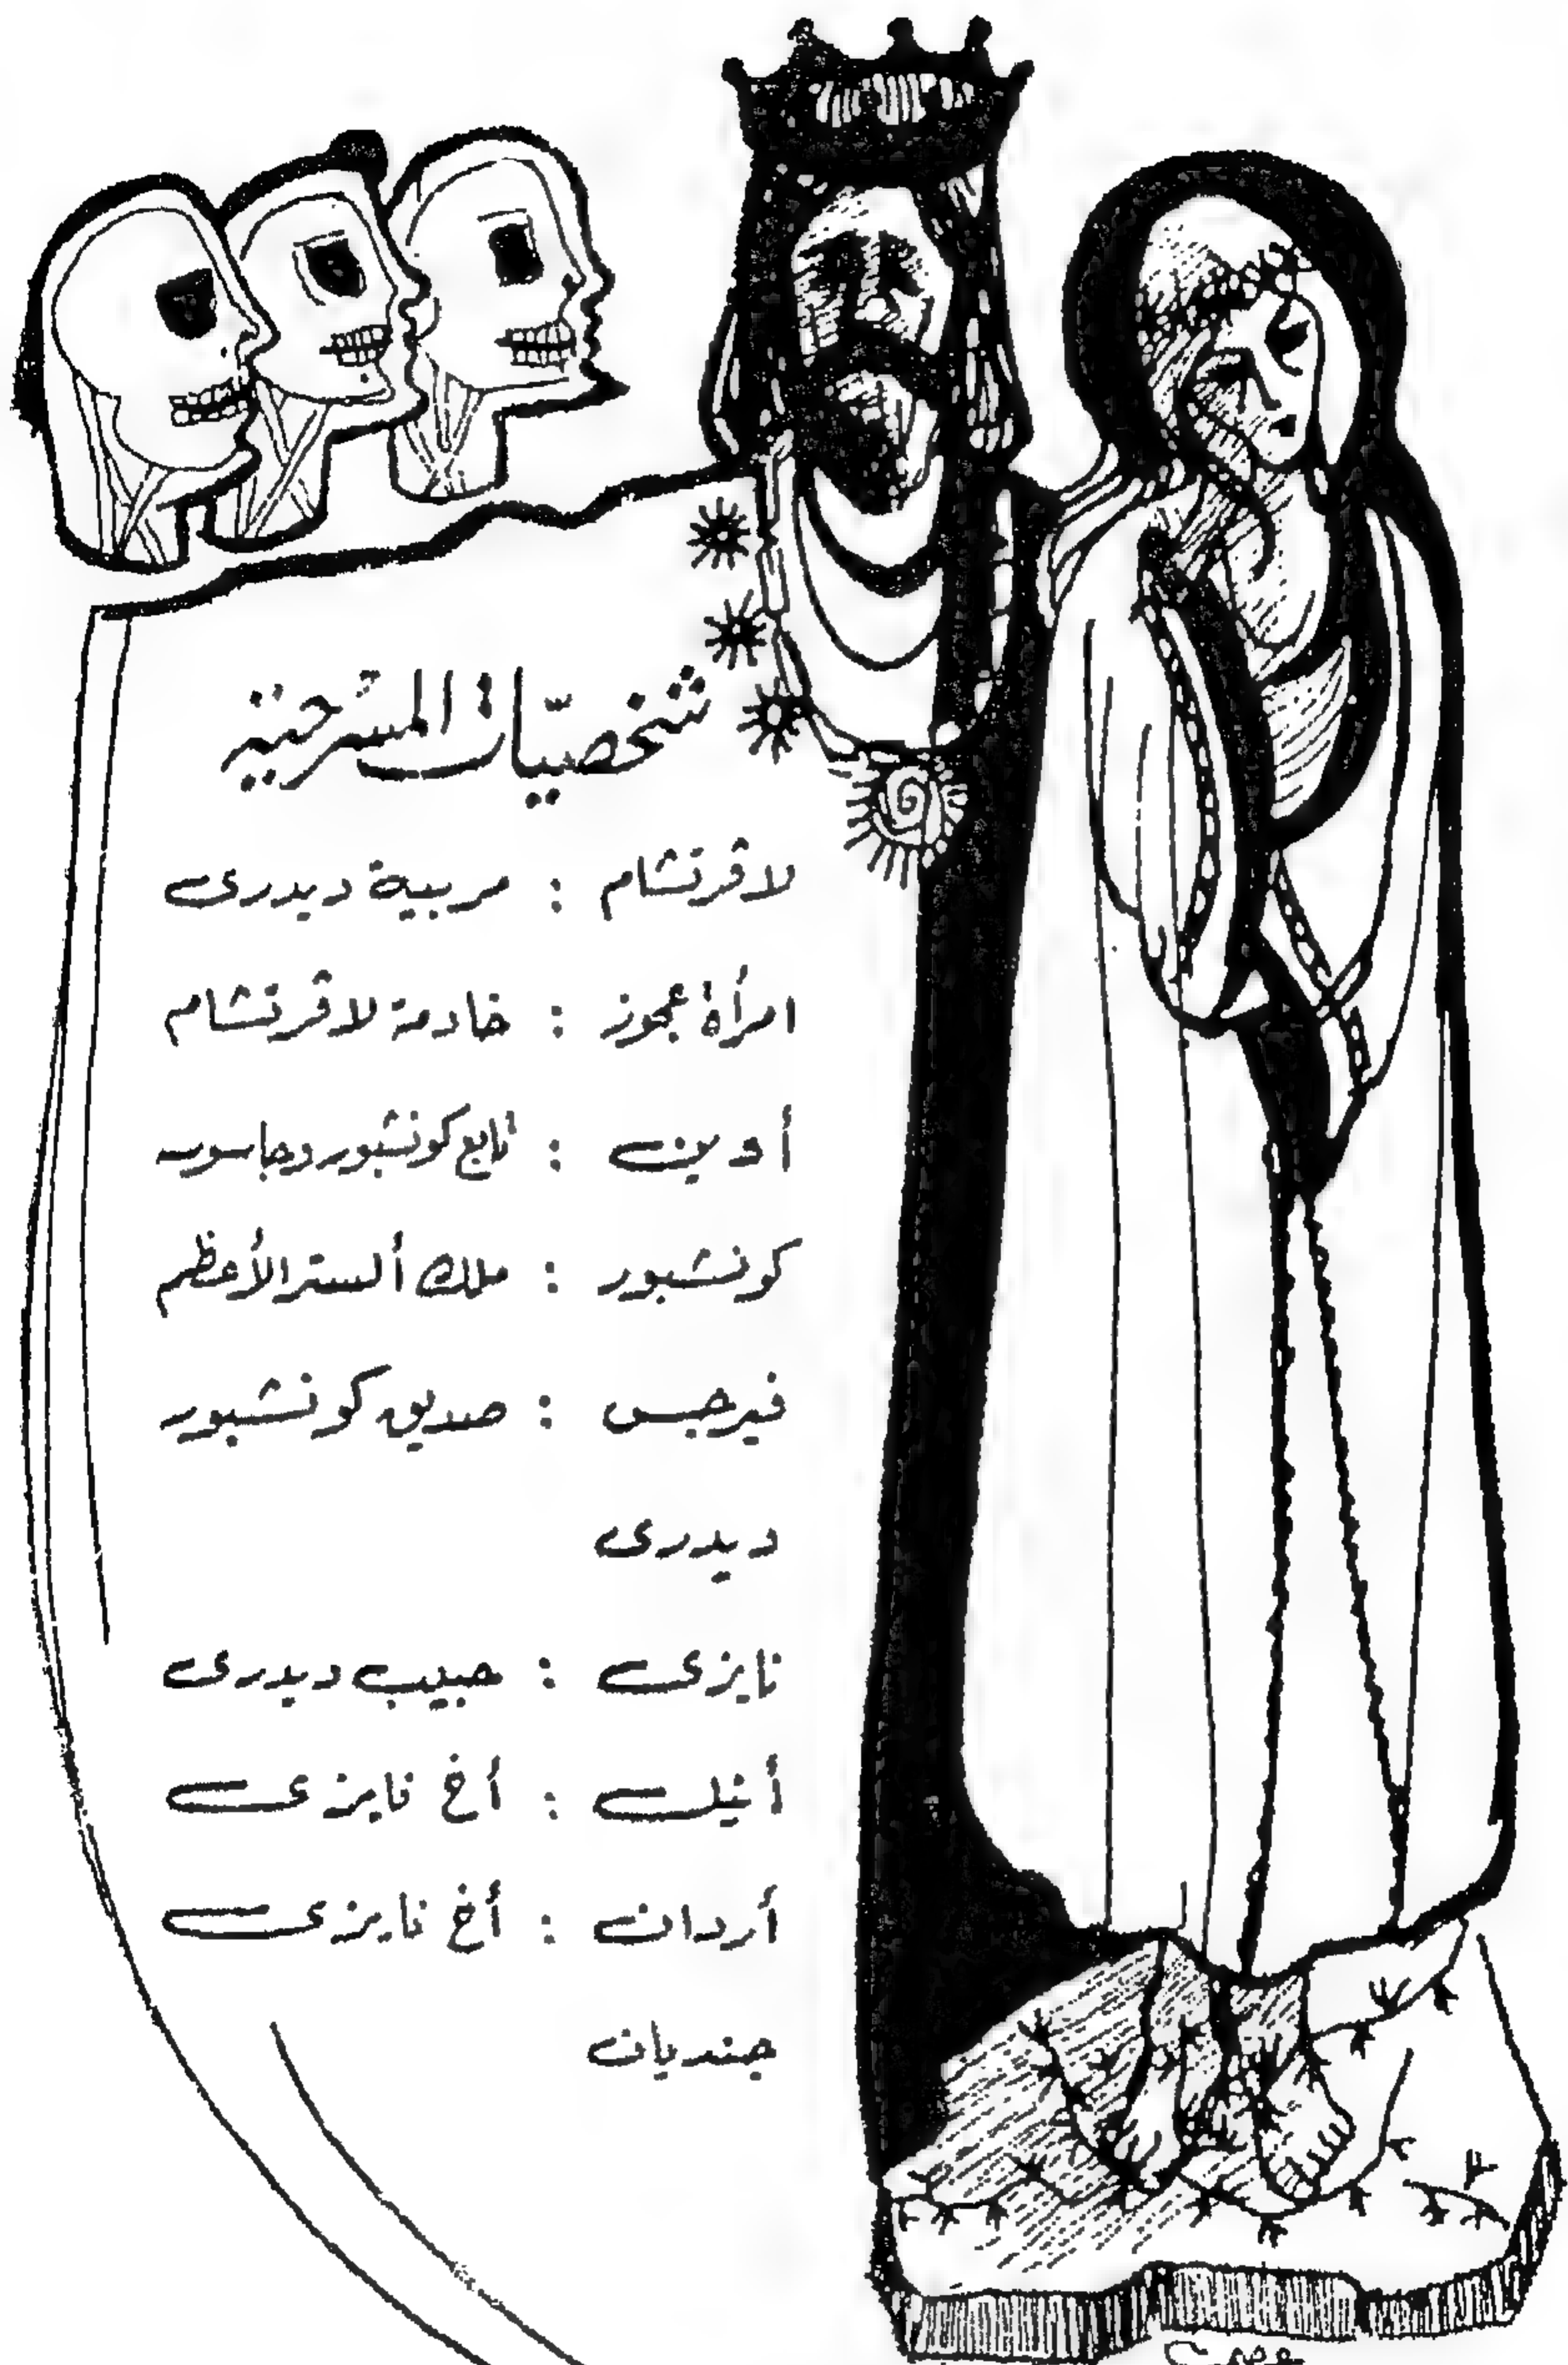 شخصيّات المسرحية
لاڤرتشام : مربية ديدرى
امرأة عجوز : خادمة لاڤرتشام
أوين : تابع كونشبور وجاسوسه
كونشبور : ملك ألستر الأعظم
فيرجس : صديق كونشبور
ديدرى
نايزى : حبيب ديدرى
أينلى : أخ نايزى
أردان : أخ نايزى
جنديان